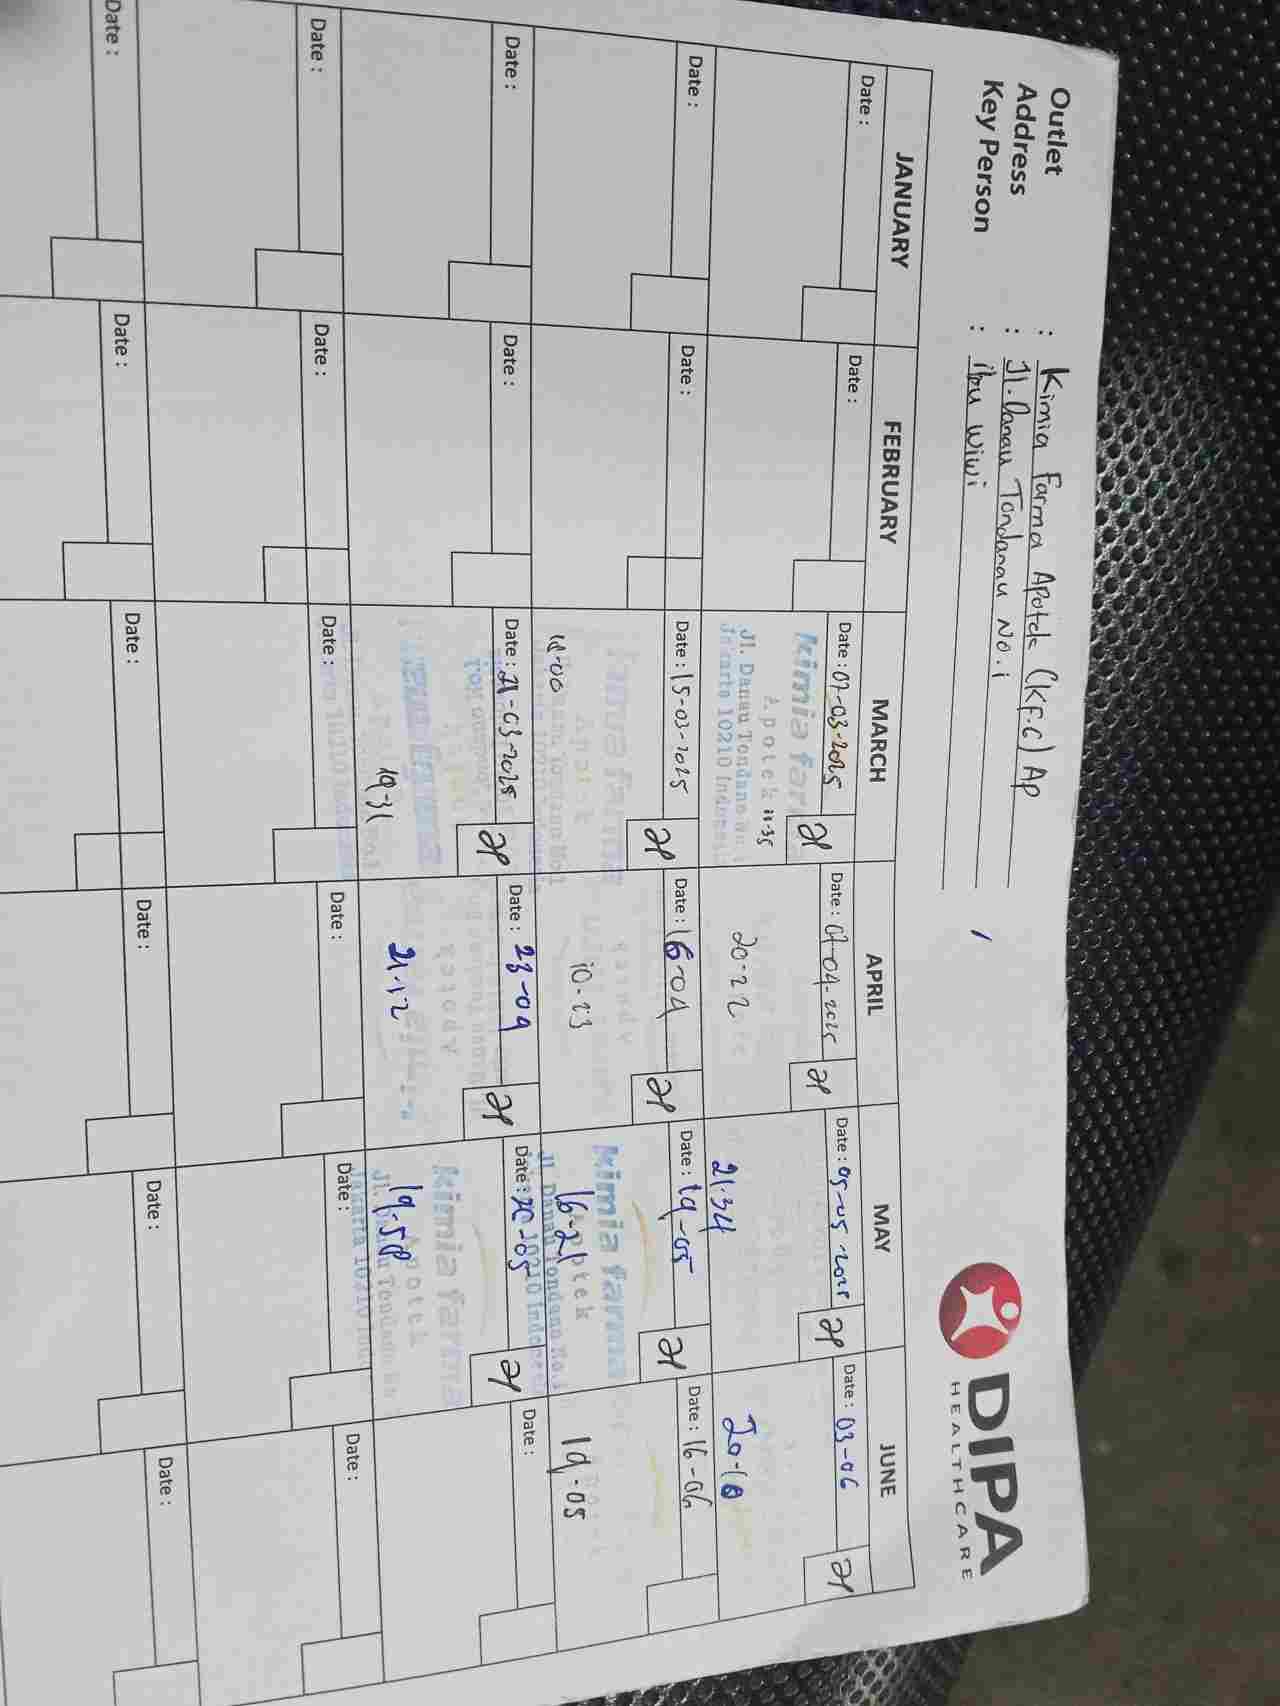 Outlet : Kimia Farma Apotek (KFC) Ap
Address : Jl. Danau Tondanau No. 1
Key Person : ibu Wiwi
DIPA
HEALTHCARE
JANUARY FEBRUARY MARCH APRIL MAY JUNE
Date : Date : Date : 07-03-2025 Date : 07-04-2025 Date : 05-05-2025 Date : 03-06
kimia far
Apotek 11-35 20-22 21.34 20-18
Jl. Danau Tondano No. 1
Jakarta 10210 Indonesia
Date : Date : Date : 15-03-2025 Date : 16-04 Date : 19-05 Date : 16-06
kimia farma
Apotek
18-00 10-23 16-21 19.05
Jl. Danau Tondano No.1
10210 Indonesia
Date : Date : Date : 21-03-2025 Date : 23-04 Date : Date :
kimia farma
Apotek
19-31 21.12 19.58
Jl. Danau Tondano
Jakarta 10210 Indo
Date : Date : Date : Date : Date : Date :
Date : Date : Date : Date : Date : Date :